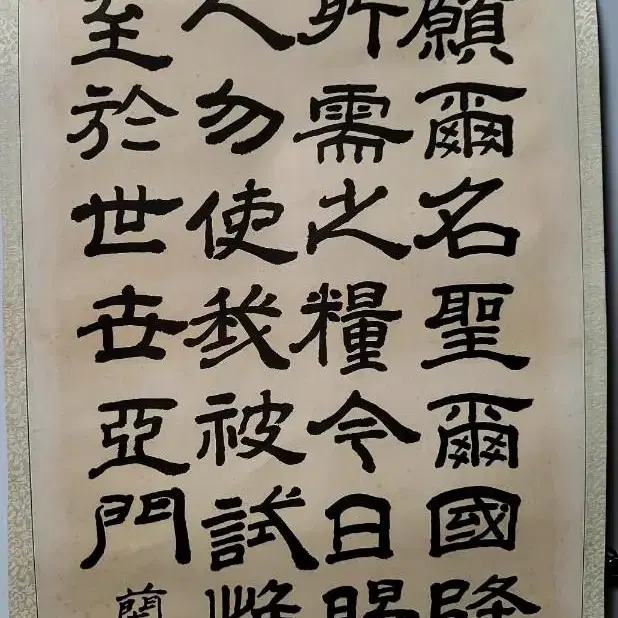 願爾名聖爾國降
所需之糧今日賜
人勿使我被試惟
至於世世亞門